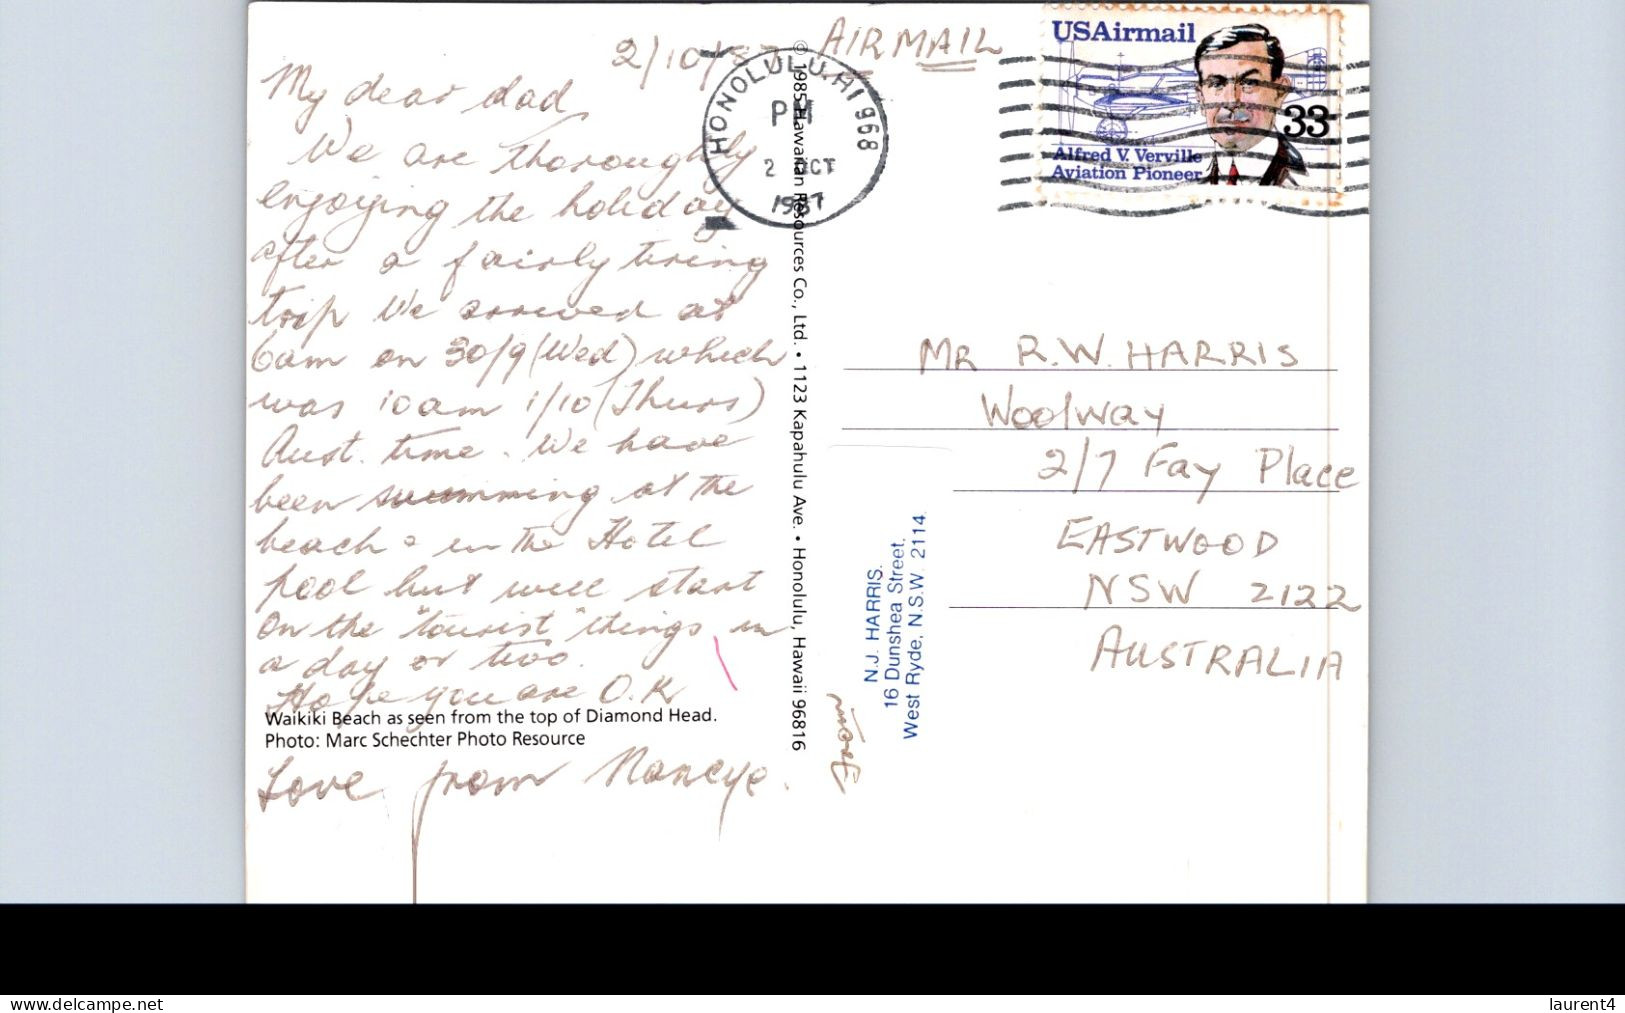 2/10/87
AIRMAIL
My dear dad
We are thoroughly
enjoying the holiday
after a fairly tiring
trip We arrived at
6am on 30/9 (Wed) which
was 10am 1/10 (Thurs)
Aust. time. We have
been swimming at the
beach & in the Hotel
pool but will start
on the "tourist" things in
a day or two.
Hope you are O.K
Waikiki Beach as seen from the top of Diamond Head.
Photo: Marc Schechter Photo Resource
Love from Nancye.
HONOLULU, HI 968
PM
2 OCT
1987
© 1985 Hawaiian Resources Co., Ltd. • 1123 Kapahulu Ave. • Honolulu, Hawaii 96816
USAirmail
33
Alfred V. Verville
Aviation Pioneer
MR R.W. HARRIS
Woolway
2/7 Fay Place
EASTWOOD
NSW 2122
AUSTRALIA
From
N.J. HARRIS.
16 Dunshea Street,
West Ryde, N.S.W. 2114.
www.delcampe.net
laurent4